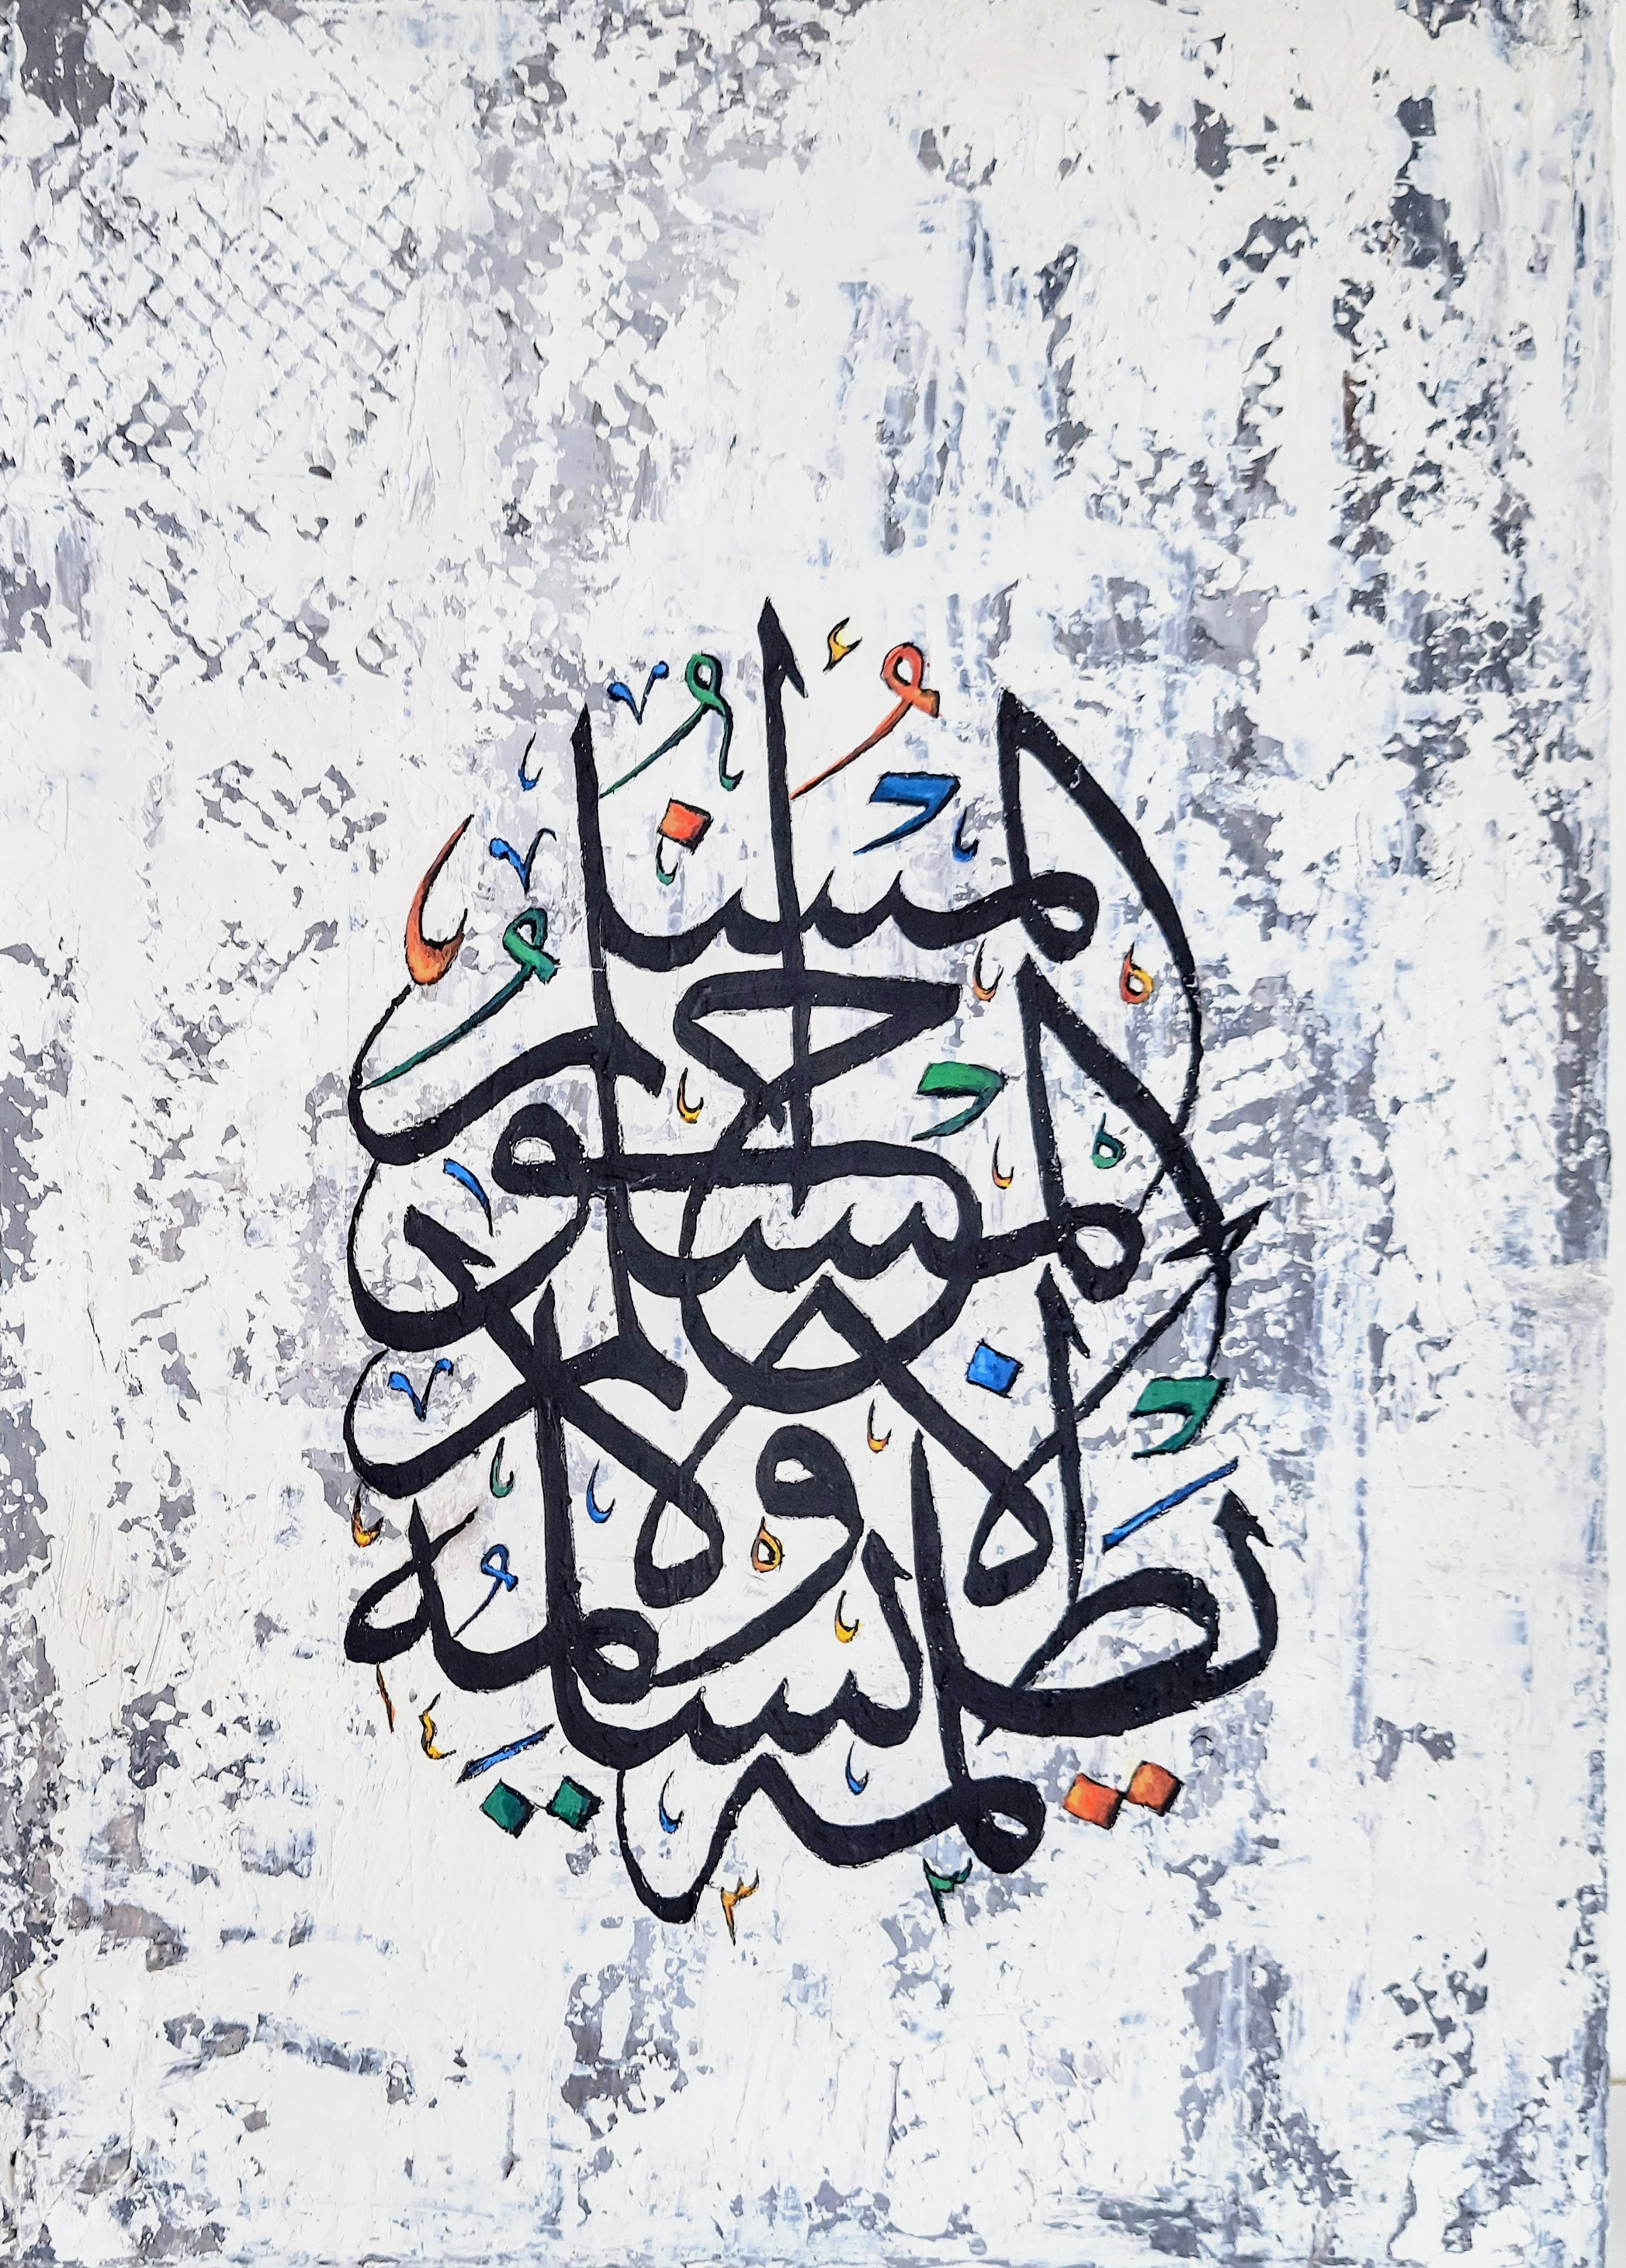 المسلم أخو
المسلم
لا يظلمه
ولا يسلمه